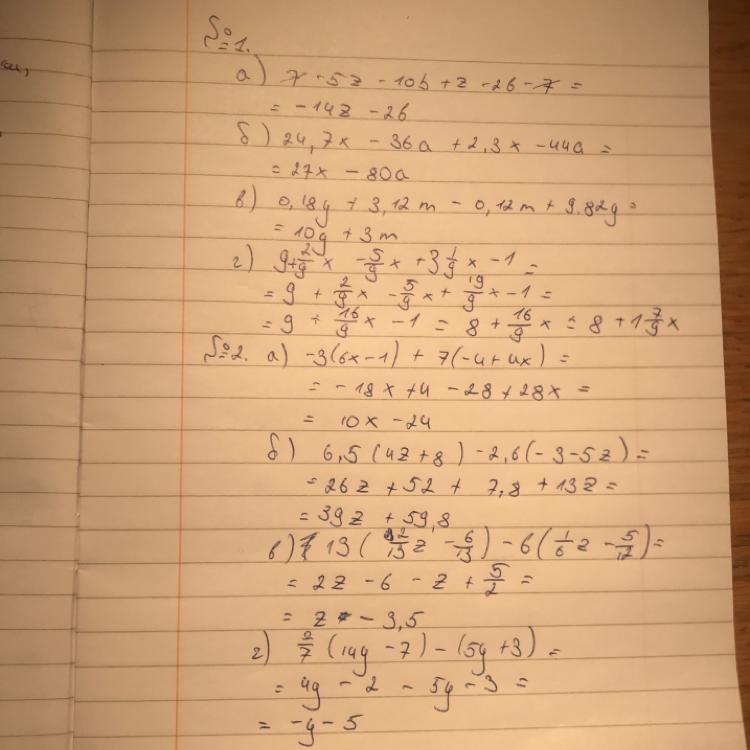 №1.
а) 7 - 5z - 10b + z - 2b - 7 =
= -14z - 2b
б) 24,7x - 36a + 2,3x - 44a =
= 27x - 80a
в) 0,18y + 3,12m - 0,12m + 9.82y =
= 10y + 3m
г) 9 + 2/9 x - 5/9 x + 3 1/9 x - 1 =
= 9 + 2/9 x - 5/9 x + 19/9 x - 1 =
= 9 + 16/9 x - 1 = 8 + 16/9 x = 8 + 1 7/9 x
№2. а) -3(6x - 1) + 7(-4 + 4x) =
= -18x + 4 - 28 + 28x =
= 10x - 24
б) 6,5(4z + 8) - 2,6(-3 - 5z) =
= 26z + 52 + 7,8 + 13z =
= 39z + 59,8
в) 13( 2/13 z - 6/13 ) - 6( 1/6 z - 5/12 ) =
= 2z - 6 - z + 5/2 =
= z - 3,5
г) 2/7 (14y - 7) - (5y + 3) =
= 4y - 2 - 5y - 3 =
= -y - 5